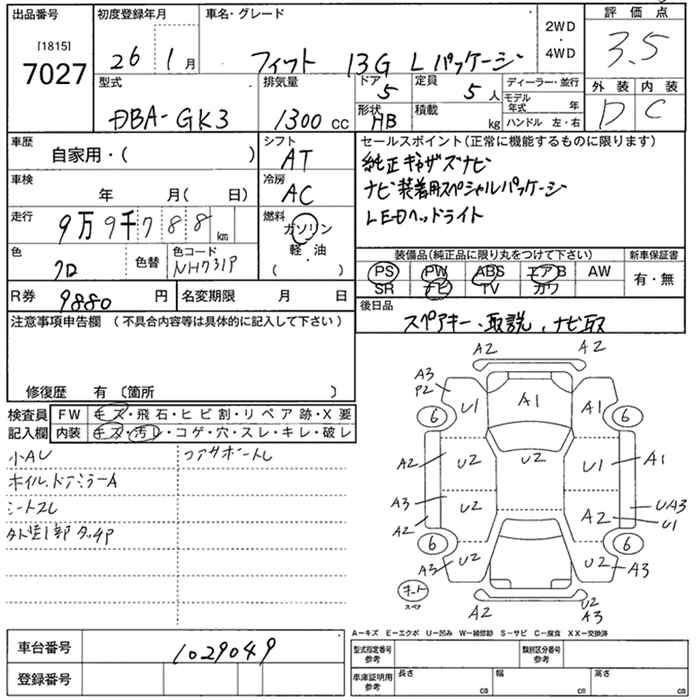 出品番号 初度登録年月 車名・グレード 2WD・4WD 評価点
[1815] 7027 26 1月 フィット 13G Lパッケージ 3.5
型式 排気量 ドア 5 定員 5人 ディーラー・並行 外装 内装
DBA-GK3 1300cc 形状 HB 積載 kg モデル年式 年 D C
ハンドル 左・右
車歴 シフト セールスポイント(正常に機能するものに限ります)
自家用・( ) AT 純正ギャザズナビ
車検 冷房 ナビ装着用スペシャルパッケージ
年 月( 日) AC LEDヘッドライト
走行 9万9千788km 燃料 ガソリン
軽・油
( ・ )
色 クロ 色替 色コード NH731P
装備品(純正品に限り丸をつけて下さい) 新車保証書
PS PW ABS エアB AW 有・無
SR ナビ TV カワ
R券 9880円 名変期限 月 日 後日品
スペアキー、取説、ナビ取
注意事項申告欄 (不具合内容等は具体的に記入して下さい)
修復歴 有〔箇所 〕
検査員 FW キズ・飛石・ヒビ割・リペア跡・X要
記入欄 内装 キズ・汚レ・コゲ・穴・スレ・キレ・破レ
小AU コアサポートし
ホイル、ドアミラーA
シートスレ
外装1部タッチP
A2 A2
A3 P2 U1 A1 A1
6 6
A2 U2 U2 U1 A1
A3 U2 A2 UA3 U1
A2
6 6
A3 U2 U2 A3
スペア
A2 U2 A3
A-キズ E-エクボ U-凹み W-補修跡 S-サビ C-腐食 XX-交換済
車台番号 1029049
型式指定番号 参考 類別区分番号 参考
登録番号
車庫証明用 参考 長さ cm 幅 cm 高さ cm